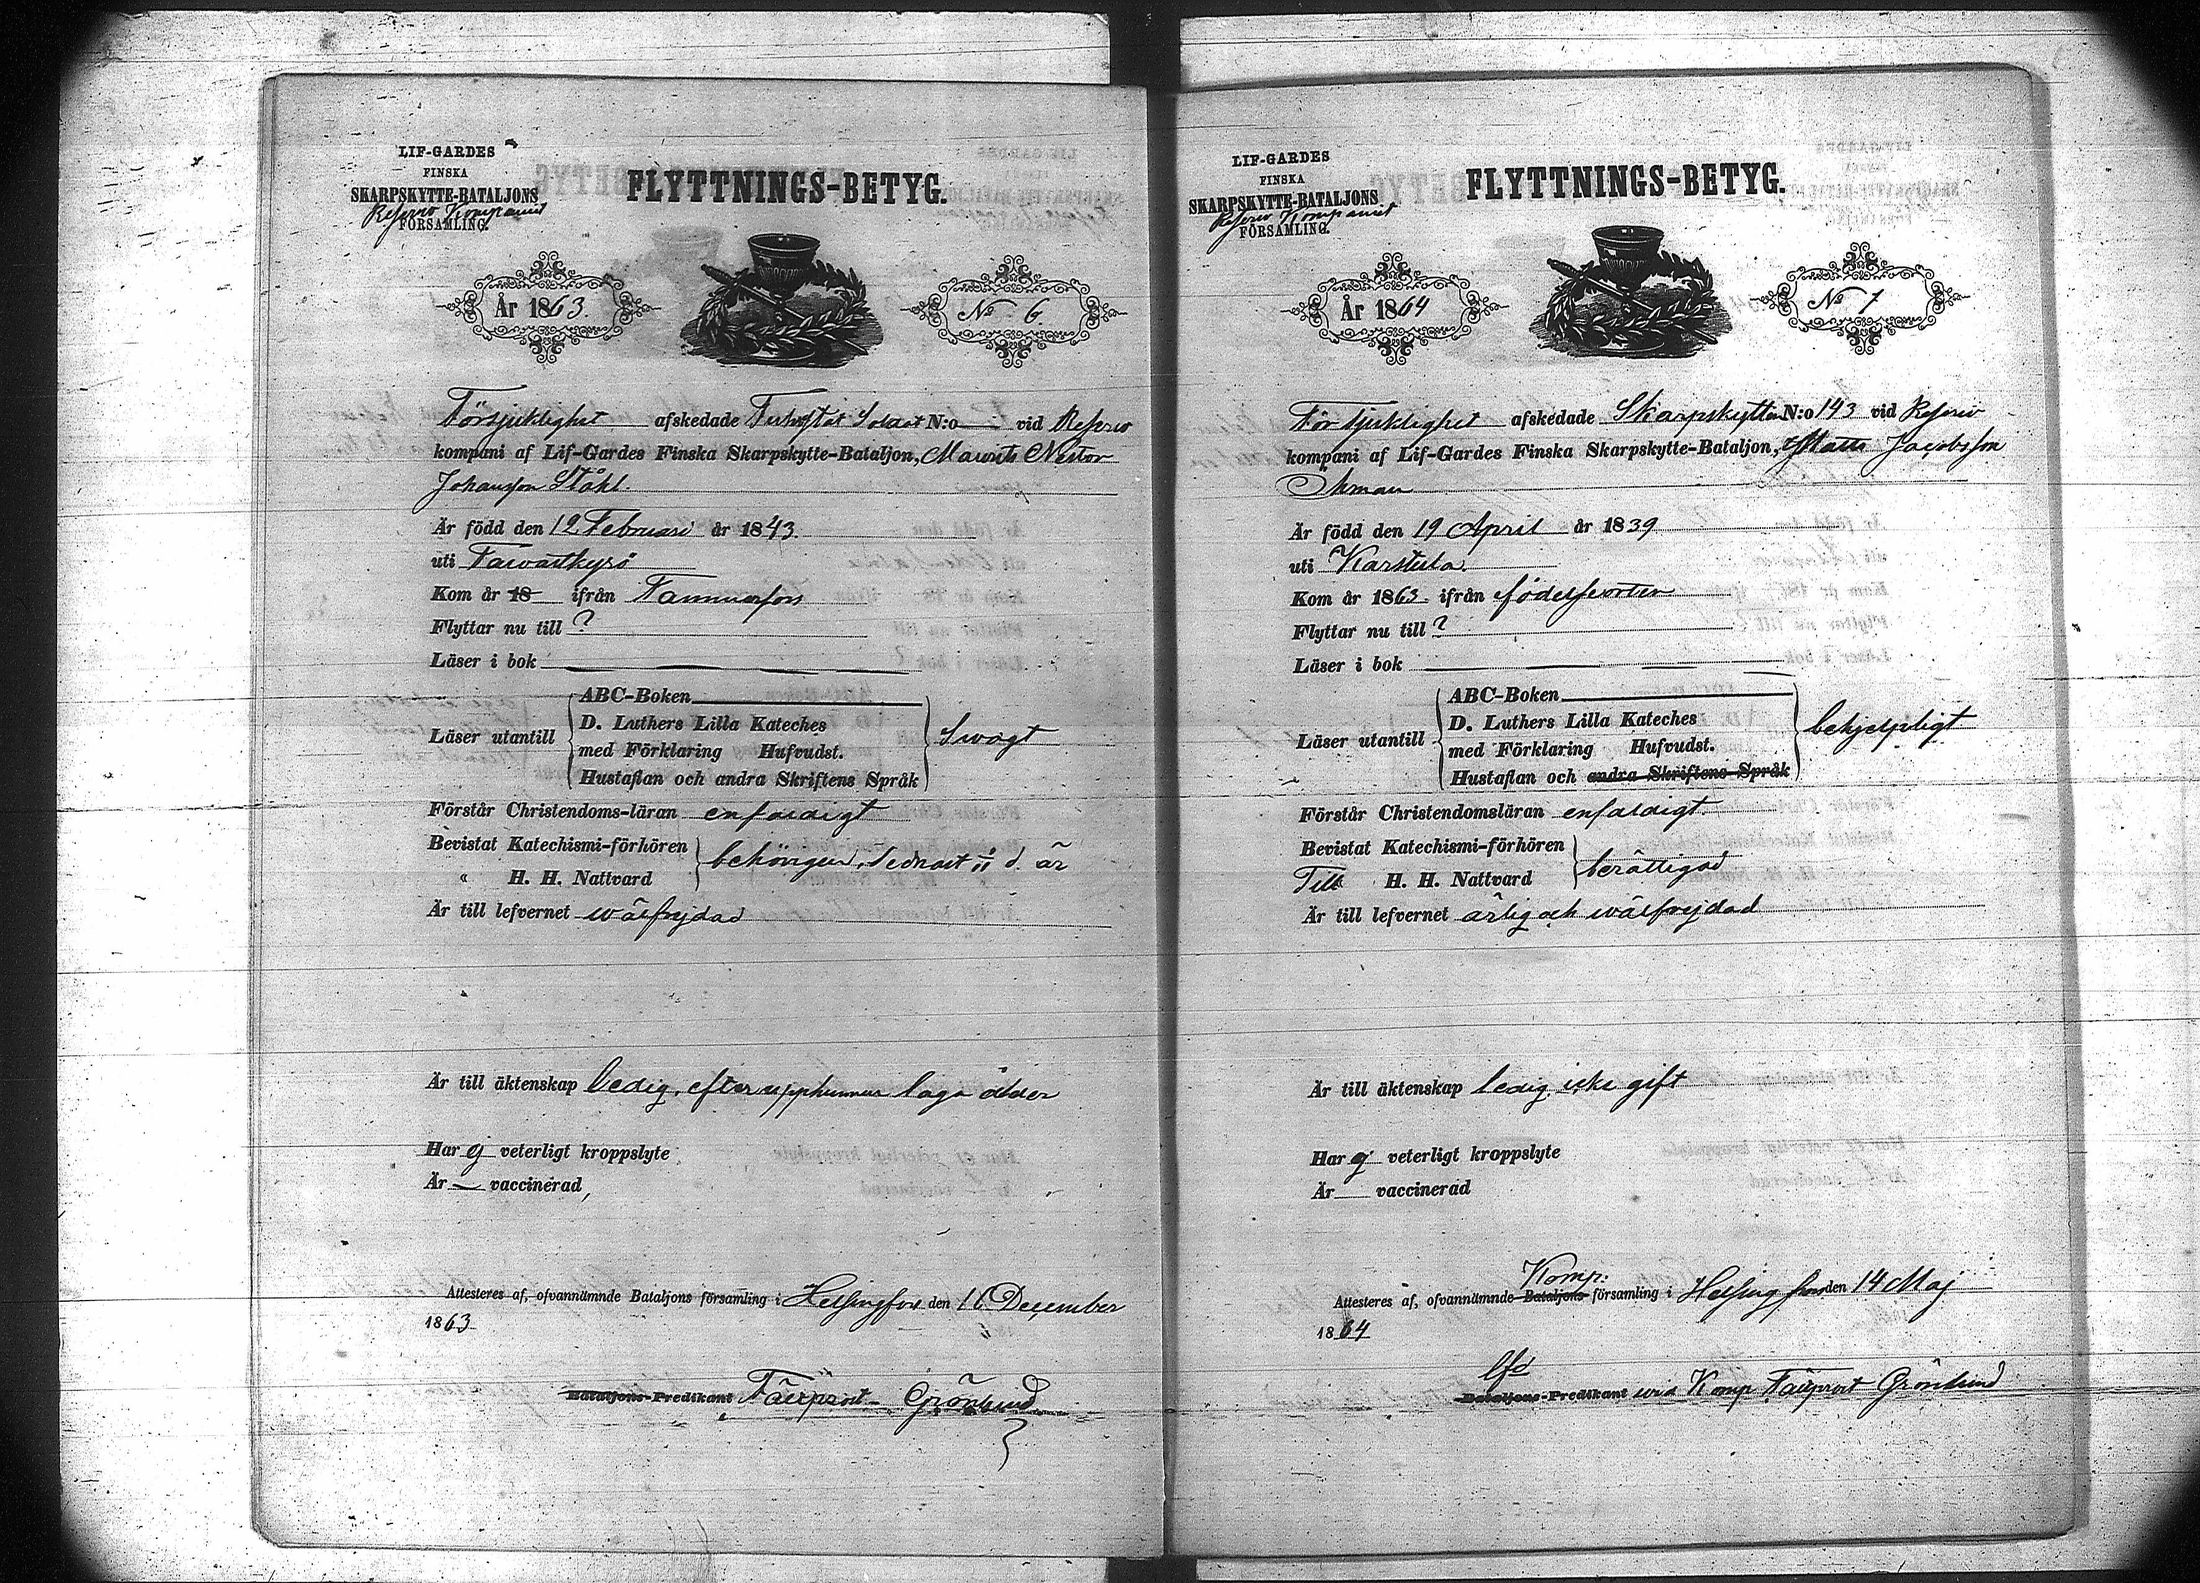 LIF-GARDES
FINSKA
SKARPSKYTTE-BATALJONS
Reserv Kompaniet
FÖRSAMLING.
FLYTTNINGS-BETYG.
År 1863.
No 6.
För sjuklighet afskedade Soldat N:o — vid Reserv
kompani af Lif-Gardes Finska Skarpskytte-Bataljon, Maurits Nestor
Johansson Ståhl.
Är född den 12 Februari år 1843.
uti Tavastkyrö
Kom år 18 ifrån Tammerfors
Flyttar nu till ?
Läser i bok
Läser utantill
ABC-Boken
D. Luthers Lilla Kateches
med Förklaring Hufvudst.
Hustaflan och andra Skriftens Språk
Swagt
Förstår Christendoms-läran enfaldigt
Bevistat Katechismi-förhören
" H. H. Nattvard
behörigen, sednast d. år
Är till lefvernet wälfrejdad
Är till äktenskap ledig, efter uppkunnen laga ålder
Har ej veterligt kroppslyte
Är — vaccinerad
Attesteres af, ofvannämnde Bataljons församling i Helsingfors den 16 December
1863
Bataljons-Predikant Fältprost Grönlund
LIF-GARDES
FINSKA
SKARPSKYTTE-BATALJONS
Reserv Kompaniet
FÖRSAMLING.
FLYTTNINGS-BETYG.
År 1864
No 1
För sjuklighet afskedade Skarpskytten N:o 143 vid Reserv
kompani af Lif-Gardes Finska Skarpskytte-Bataljon, Matts Jacobsson
Öhman
Är född den 19 April år 1839
uti Karstula.
Kom år 1863 ifrån födelseorten
Flyttar nu till ?
Läser i bok
Läser utantill
ABC-Boken
D. Luthers Lilla Kateches
med Förklaring Hufvudst.
Hustaflan och andra Skriftens Språk
behjelpligt
Förstår Christendomsläran enfaldigt.
Bevistat Katechismi-förhören
Till H. H. Nattvard
berättigad
Är till lefvernet ärlig och wälfrejdad
Är till äktenskap ledig, icke gift
Har ej veterligt kroppslyte
Är vaccinerad
Komp:
Attesteres af, ofvannämnde Bataljons församling i Helsingfors den 14 Maj
1864
Bataljons-Predikant wid Komp Fältprost Grönlund